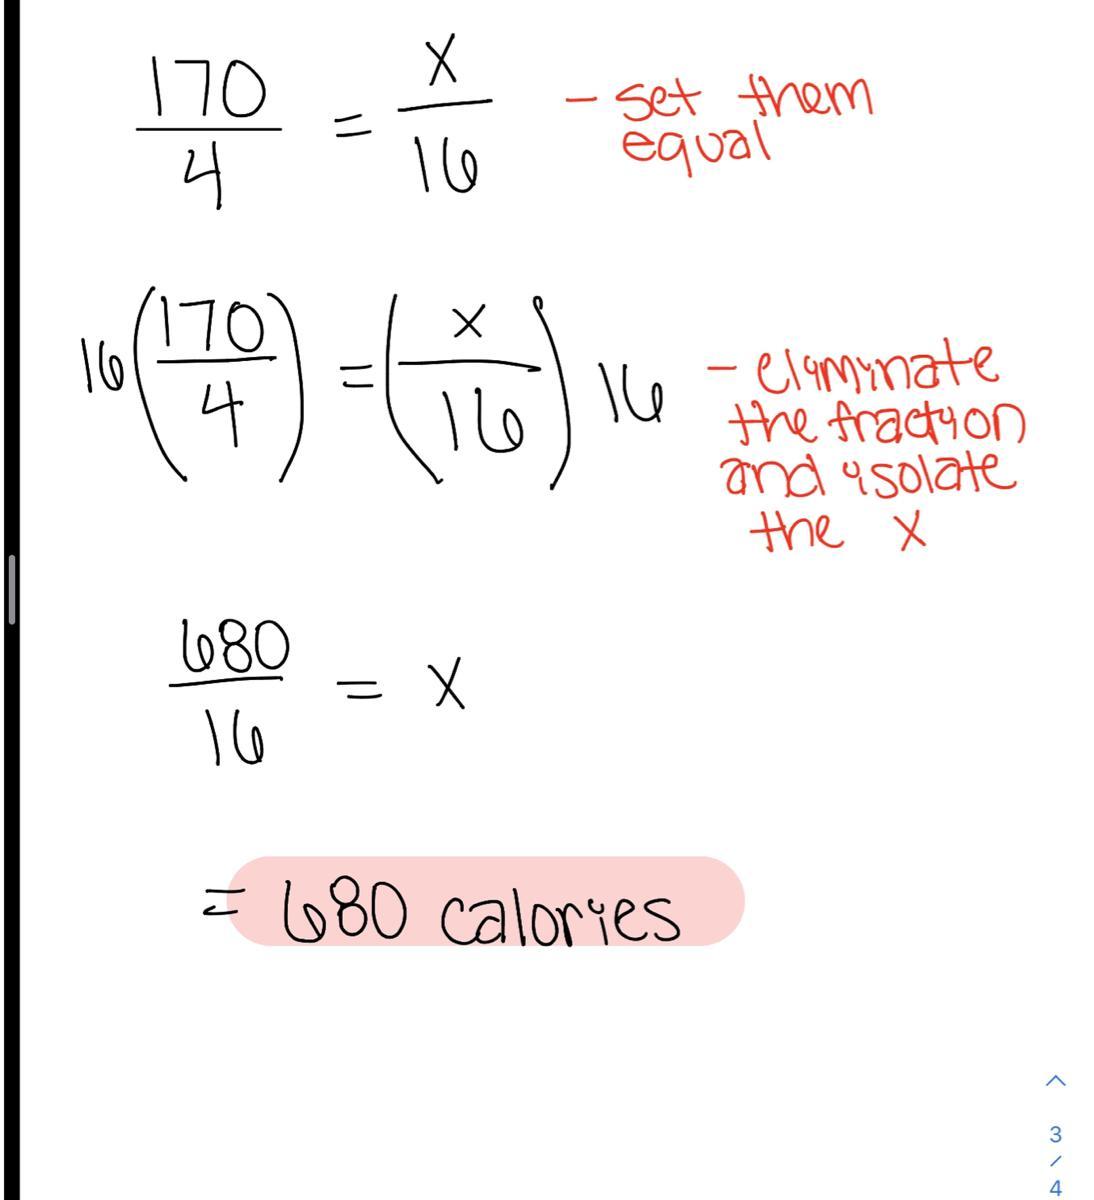 170/4 = x/16 - set them
equal
16(170/4) = (x/16) 16 - eliminate
the fraction
and isolate
the x
680/16 = x
= 680 calories
3
/
4